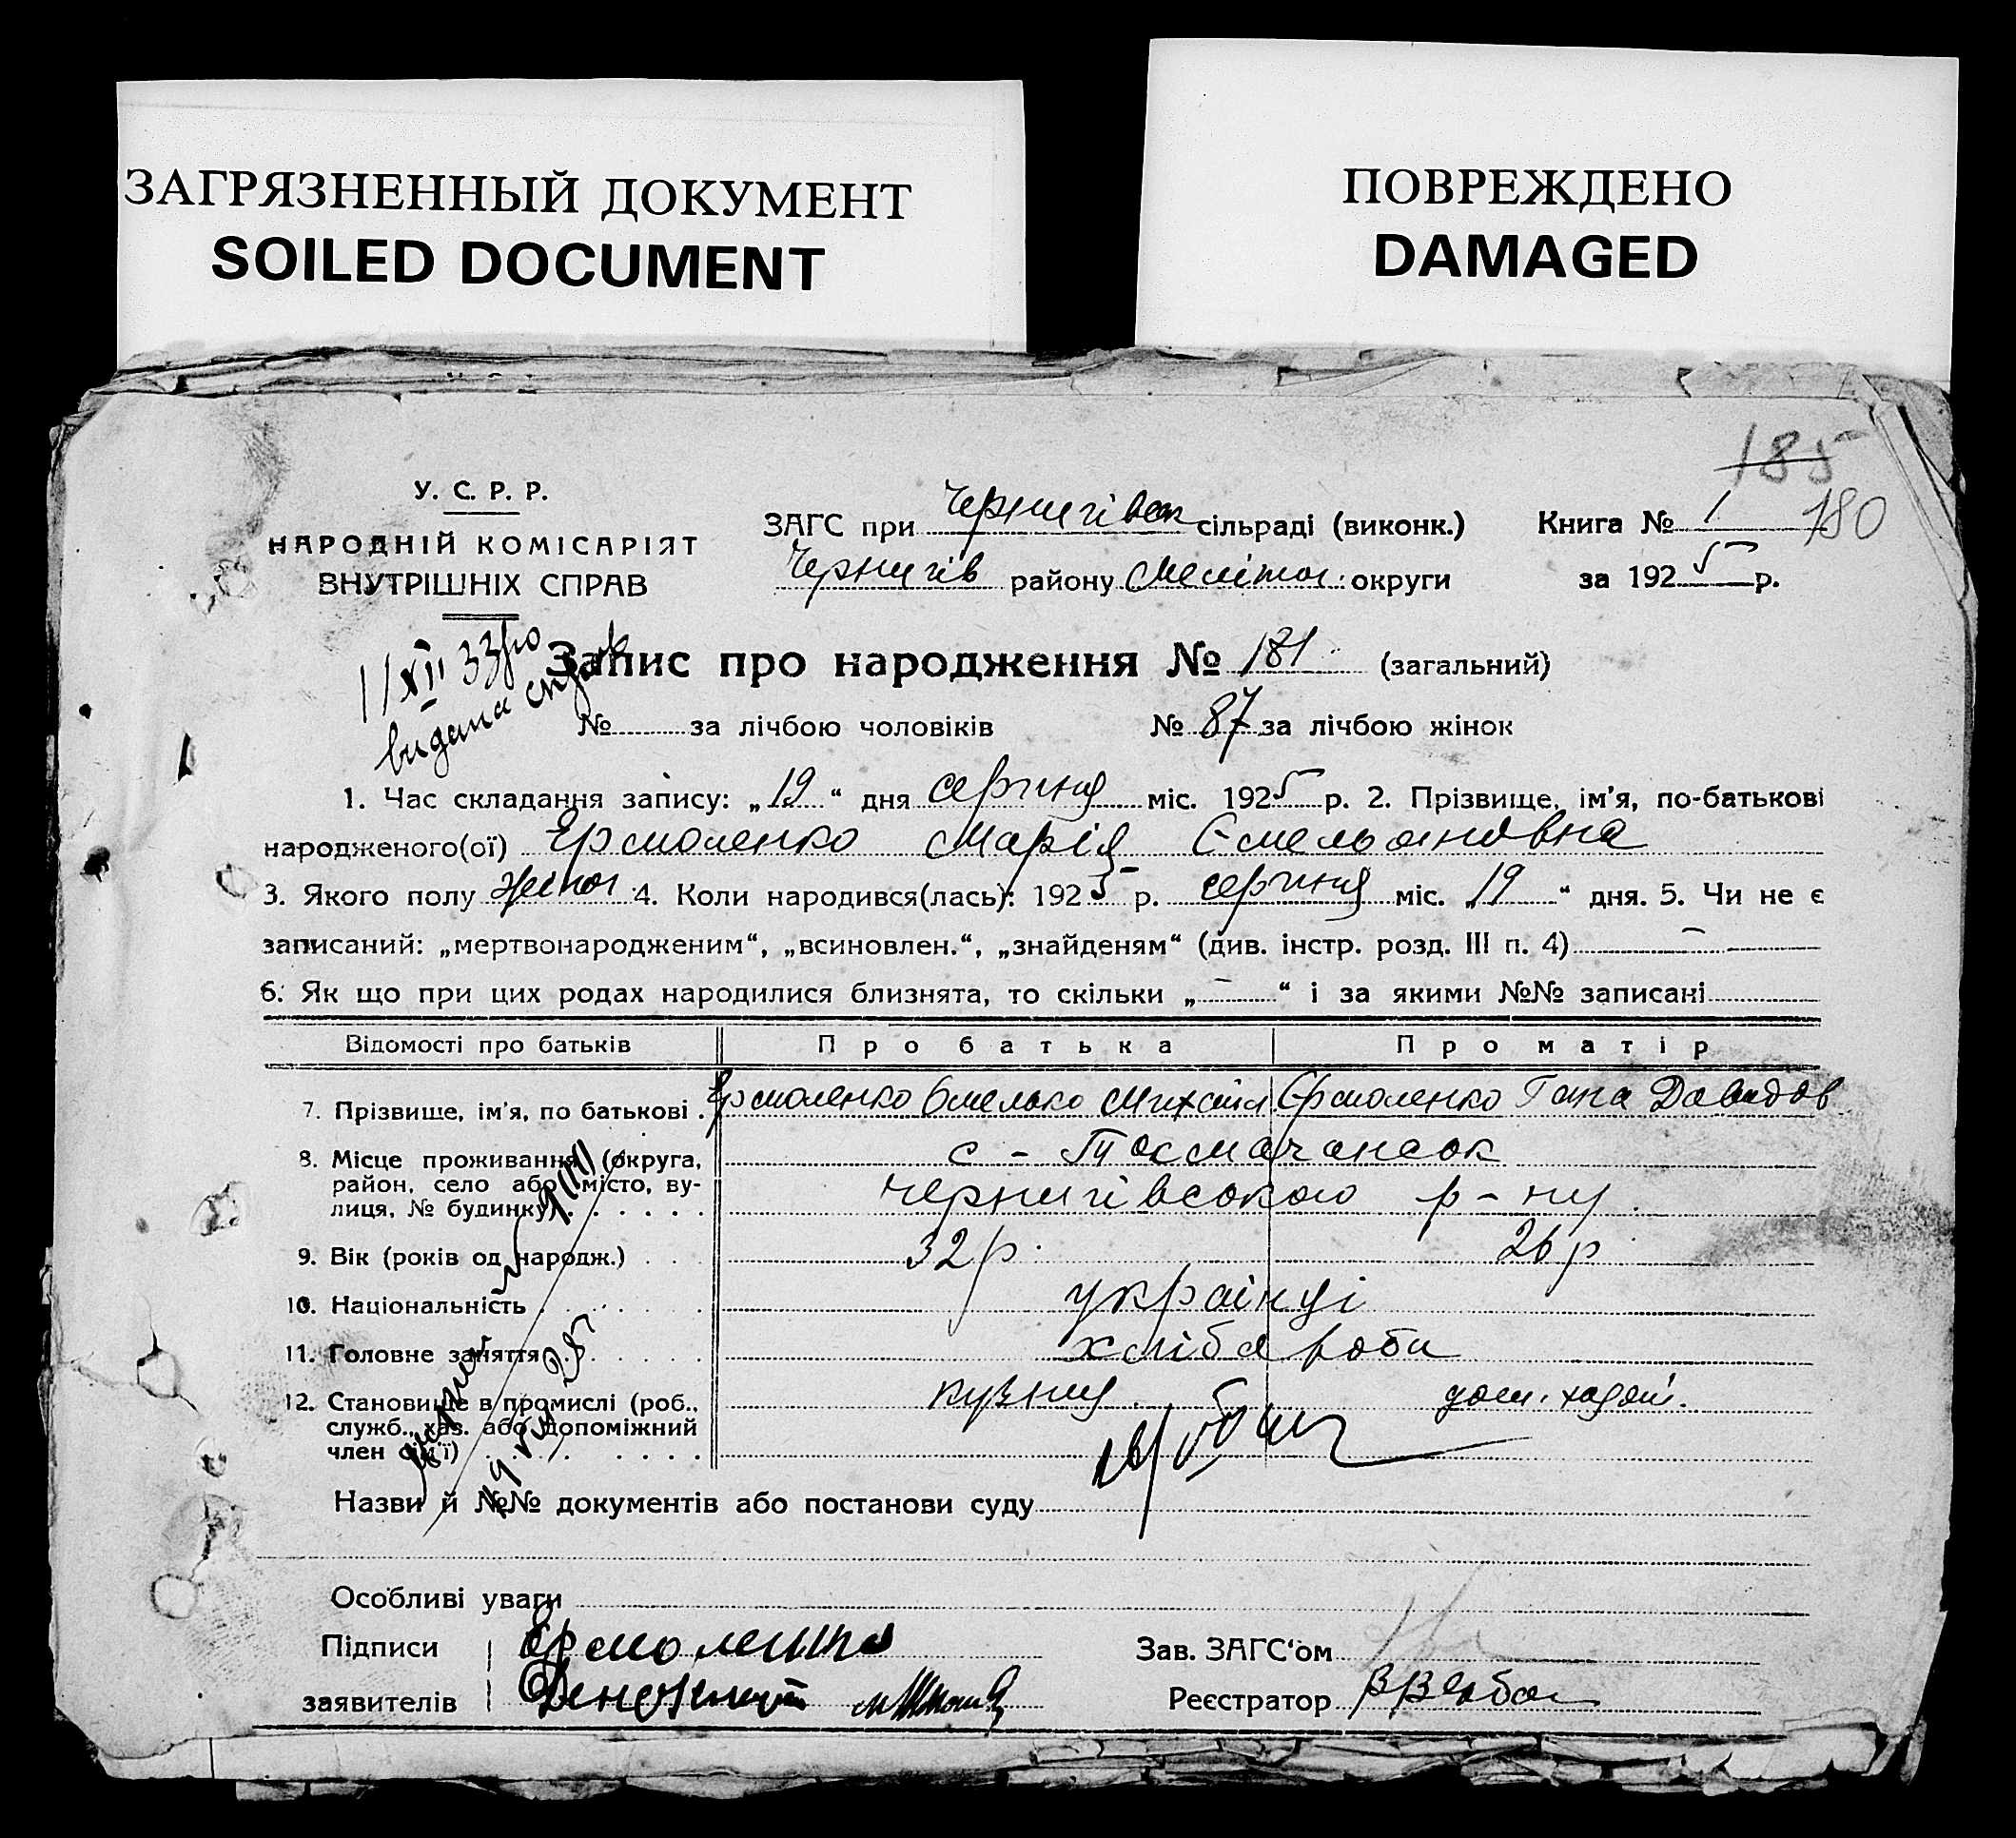 ЗАГРЯЗНЕННЫЙ ДОКУМЕНТ
SOILED DOCUMENT
ПОВРЕЖДЕНО
DAMAGED
185
У. С. Р. Р.
НАРОДНІЙ КОМІСАРІЯТ
ВНУТРІШНІХ СПРАВ
ЗАГС при Чернигівськ сільраді (виконк.)
Чернигів району Мелітоп. округи
Книга № 1 180
за 1925 р.
11/XII 33 р.
видана
Запис про народження № 181 (загальний)
№ за лічбою чоловіків № 87 за лічбою жінок
1. Час складання запису: „19“ дня серпня міс. 1925 р. 2. Прізвище, ім'я, по-батькові
народженого(ої) Ермоленко Марія Емельяновна
3. Якого полу жіноч. 4. Коли народився(лась): 1925 р. серпня міс. „19“ дня. 5. Чи не є
записаний: „мертвонародженим“, „всиновлен.“, „знайденям“ (див. інстр. розд. III п. 4) –
6. Як що при цих родах народилися близнята, то скільки „–“ і за якими №№ записані
Відомості про батьків Про батька Про матір
7. Прізвище, ім'я, по батькові . Ермоленко Омелько Михайл Ермоленко Гана Давидов
8. Місце проживання (округа, район, село або місто, вулиця, № будинку) с – Токмачанськ
чернигівського р-ну
9. Вік (років од народж.) 32 р. 26 р.
10. Національність українці
11. Головне заняття хлібароби
12. Становище в промислі (роб., служб., хаз. або допоміжний член сім'ї) дом. хазяй.
Назви й №№ документів або постанови суду
Особливі уваги
Підписи Ермоленко
заявителів
Зав. ЗАГС'ом
Реєстратор